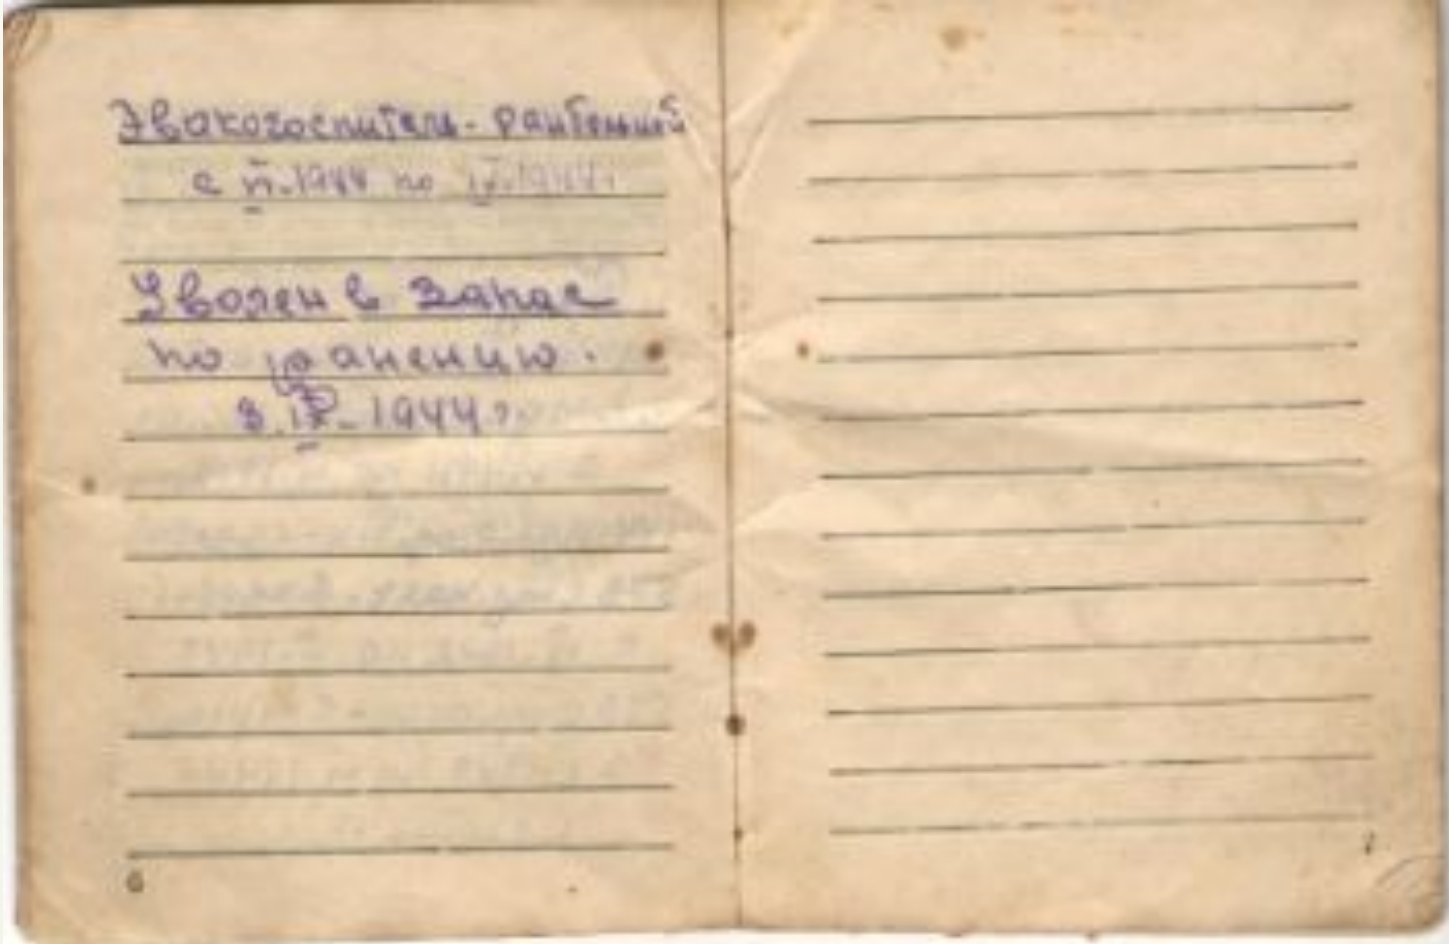 Эвокогоспиталь - раненый
с VI-1944 по IX-1944г.
Уволен в запас
по ранению.
3.IX-1944г.
6